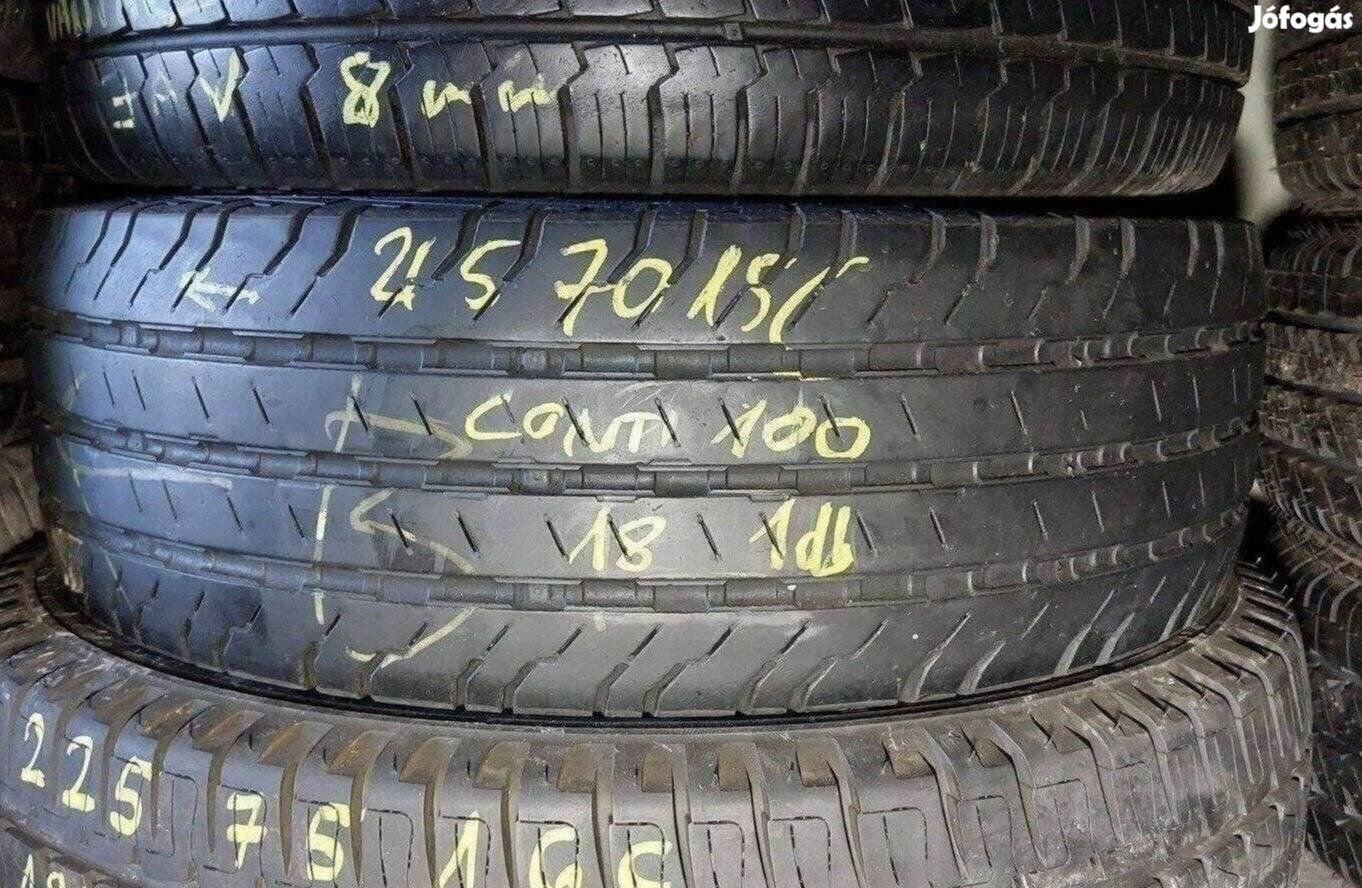 Jófogás
8 mm
← 215 70 15C
CONTI 100
18 1db
225 75 16C